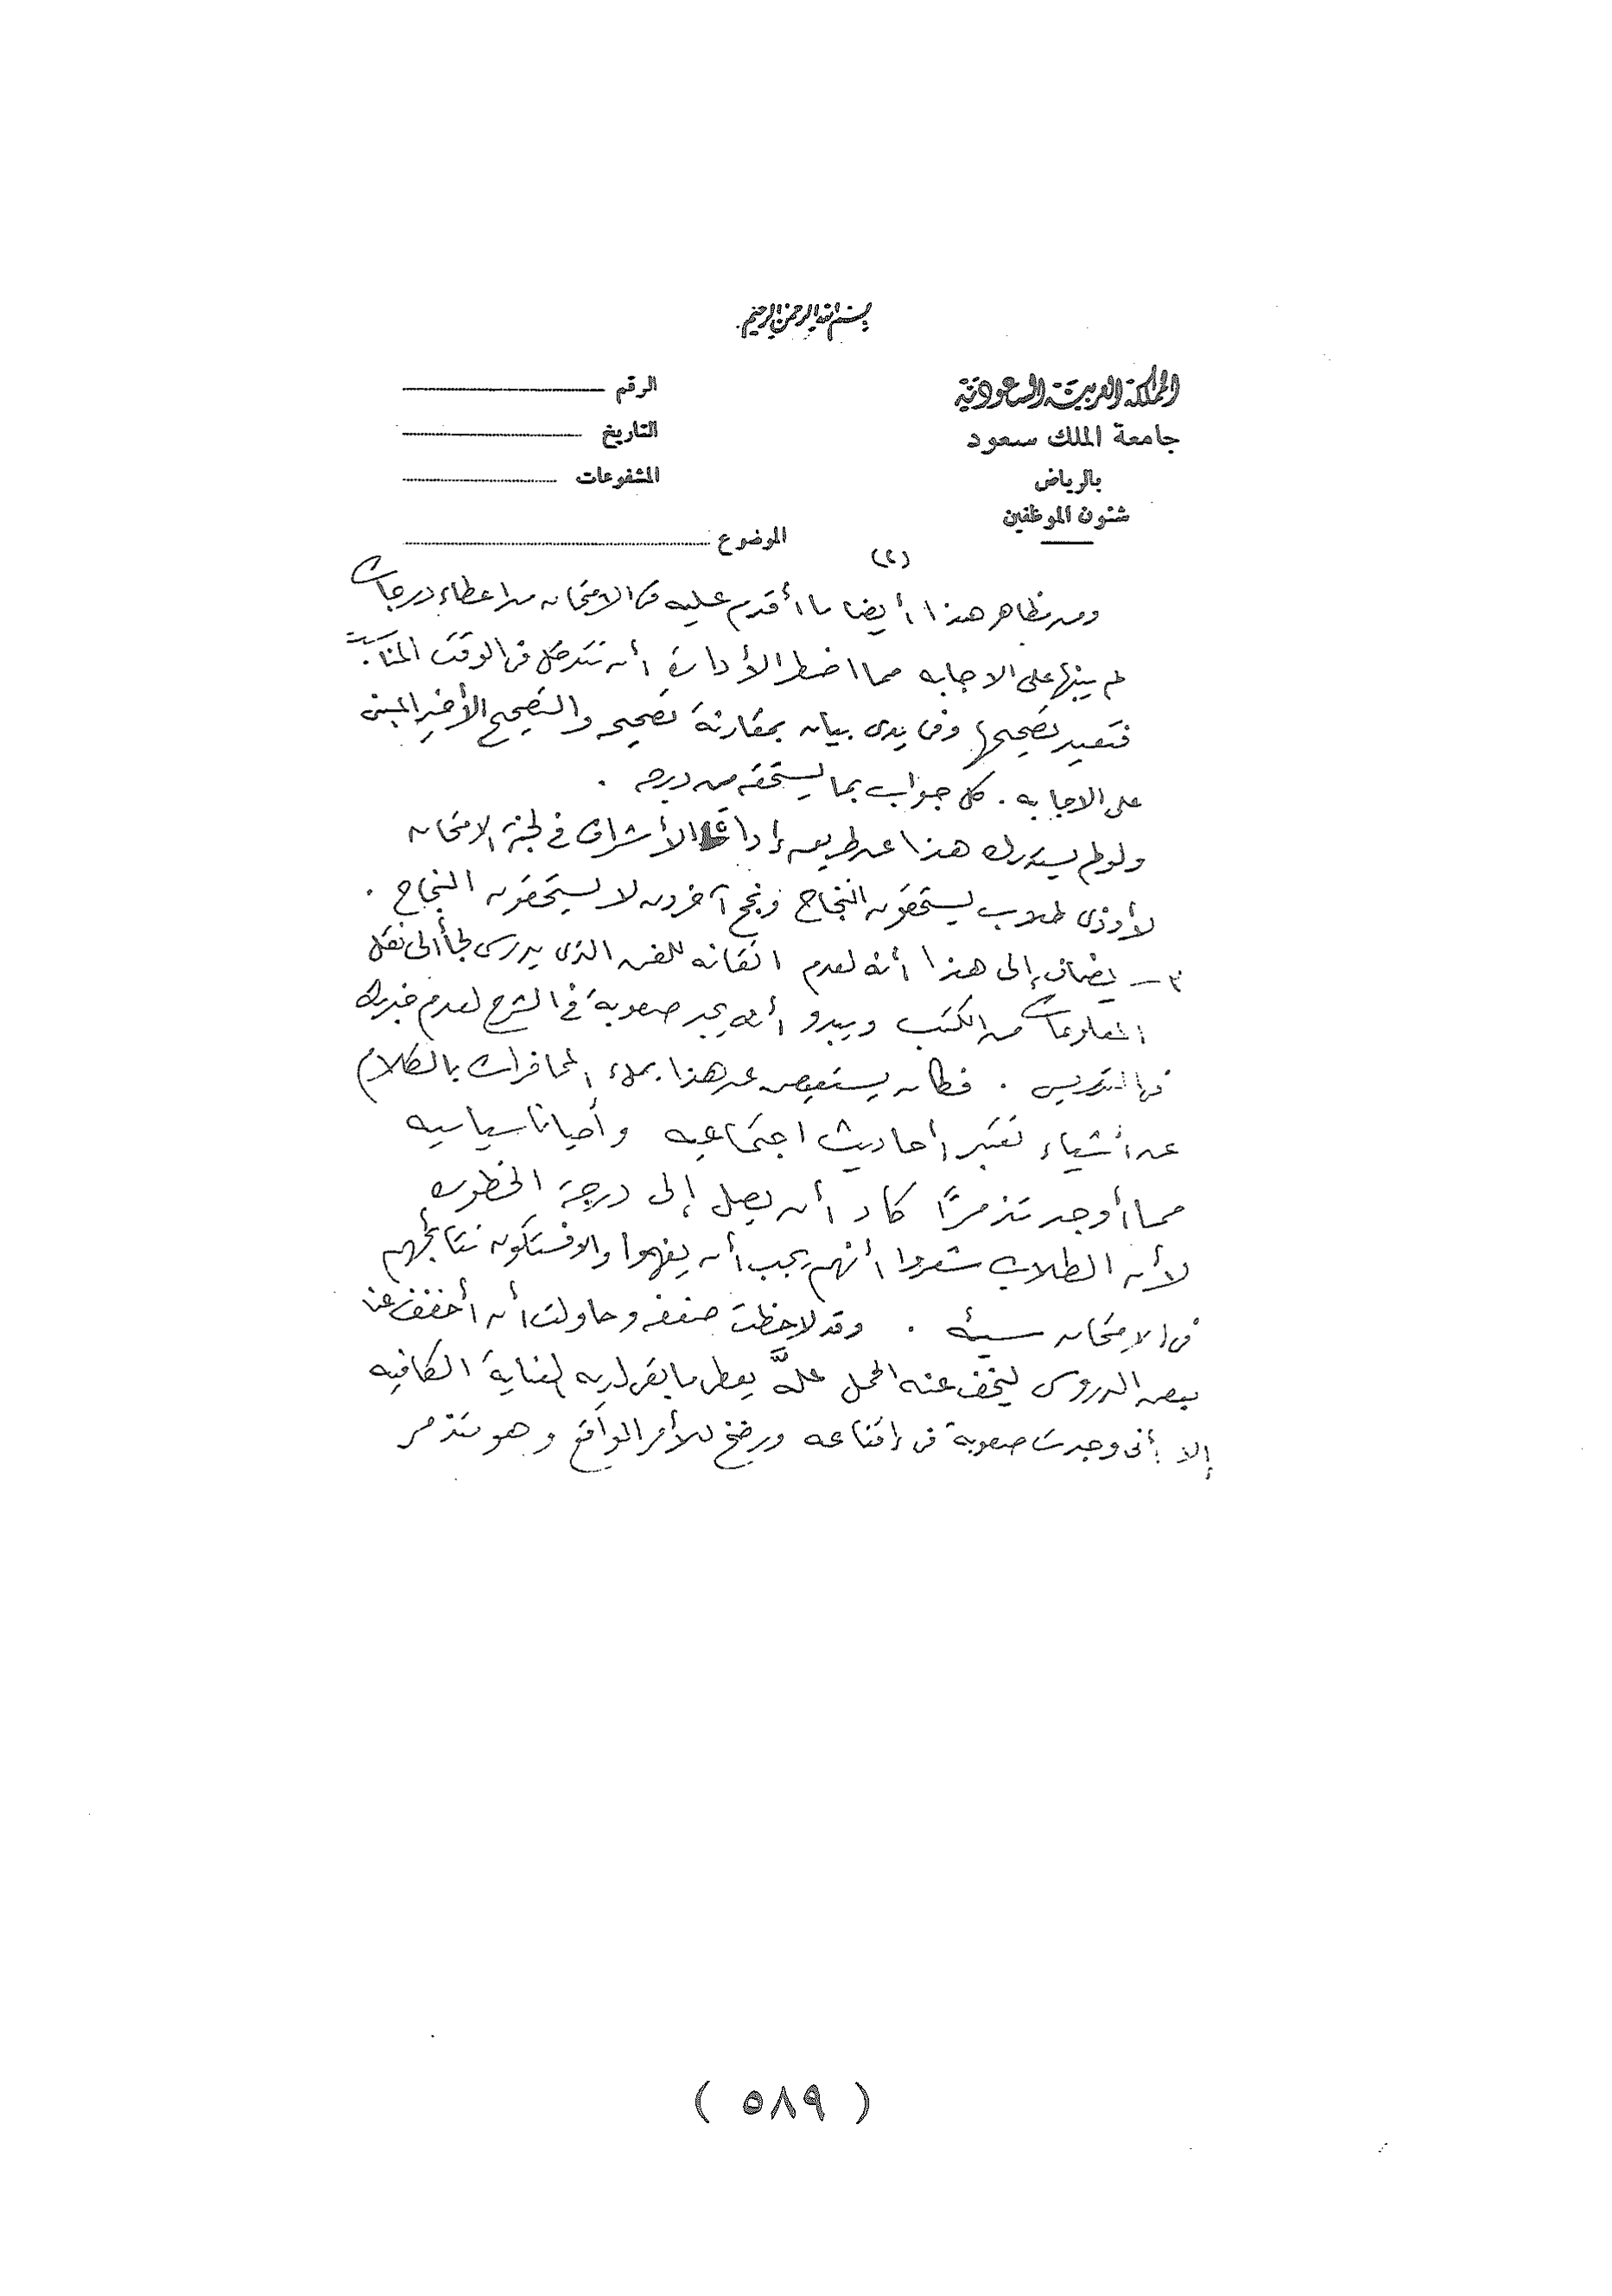 بسم الله الرحمن الرحيم
المملكة العربية السعودية
جامعة الملك سعود
بالرياض
شئون الموظفين
الرقم
التاريخ
المشفوعات
الموضوع
(٢)
ومن مظاهر هذا أيضا ما أقدم عليه فى الامتحان من اعطاء درجات
لم يبنها على الاجابه مما اضطر الأدارة أن تتدخل فى الوقت المناسب
فتعيد تصحيحها وفى يدى بيان بمقارنة تصحيحه والتصحيح الأخير المبنى
على الاجابه . كل جواب بما يستحقه من درجه .
ولو لم يستدرك هذا عن طريق إدارة الأشراف في لجنة الامتحان
لأوذى طلاب يستحقون النجاح ونجح آخرون لا يستحقون النجاح .
٣ – يضاف إلى هذا أنه لعدم اتقانه للفن الذى يدرس لجأ الى نقل
المعلومات من الكتب ويبدو أنه يجد صعوبة في الشرح لعدم خبرته
فى التدريس . فكان يستعيض عن هذا بملء المحاضرات بالكلام
عن أشياء تعتبر أحاديث اجتماعيه وأحيانا سياسيه
مما أوجد تذمرًا كاد أن يصل إلى درجة الخطوره
لأن الطلاب شعروا أنهم يجب أن يفهموا والا فستكون نتائجهم
فى الامتحان سيئه . وقد لاحظت ضعفه وحاولت أن أخفف عنه
بعض الدروس ليخف عنه الحمل علَّه يعطى ما بقى لديه العناية الكافيه
إلا أنى وجدت صعوبة فى إقناعه ورضخ للأمر الواقع وهو متذمر
( ٥٨٩ )